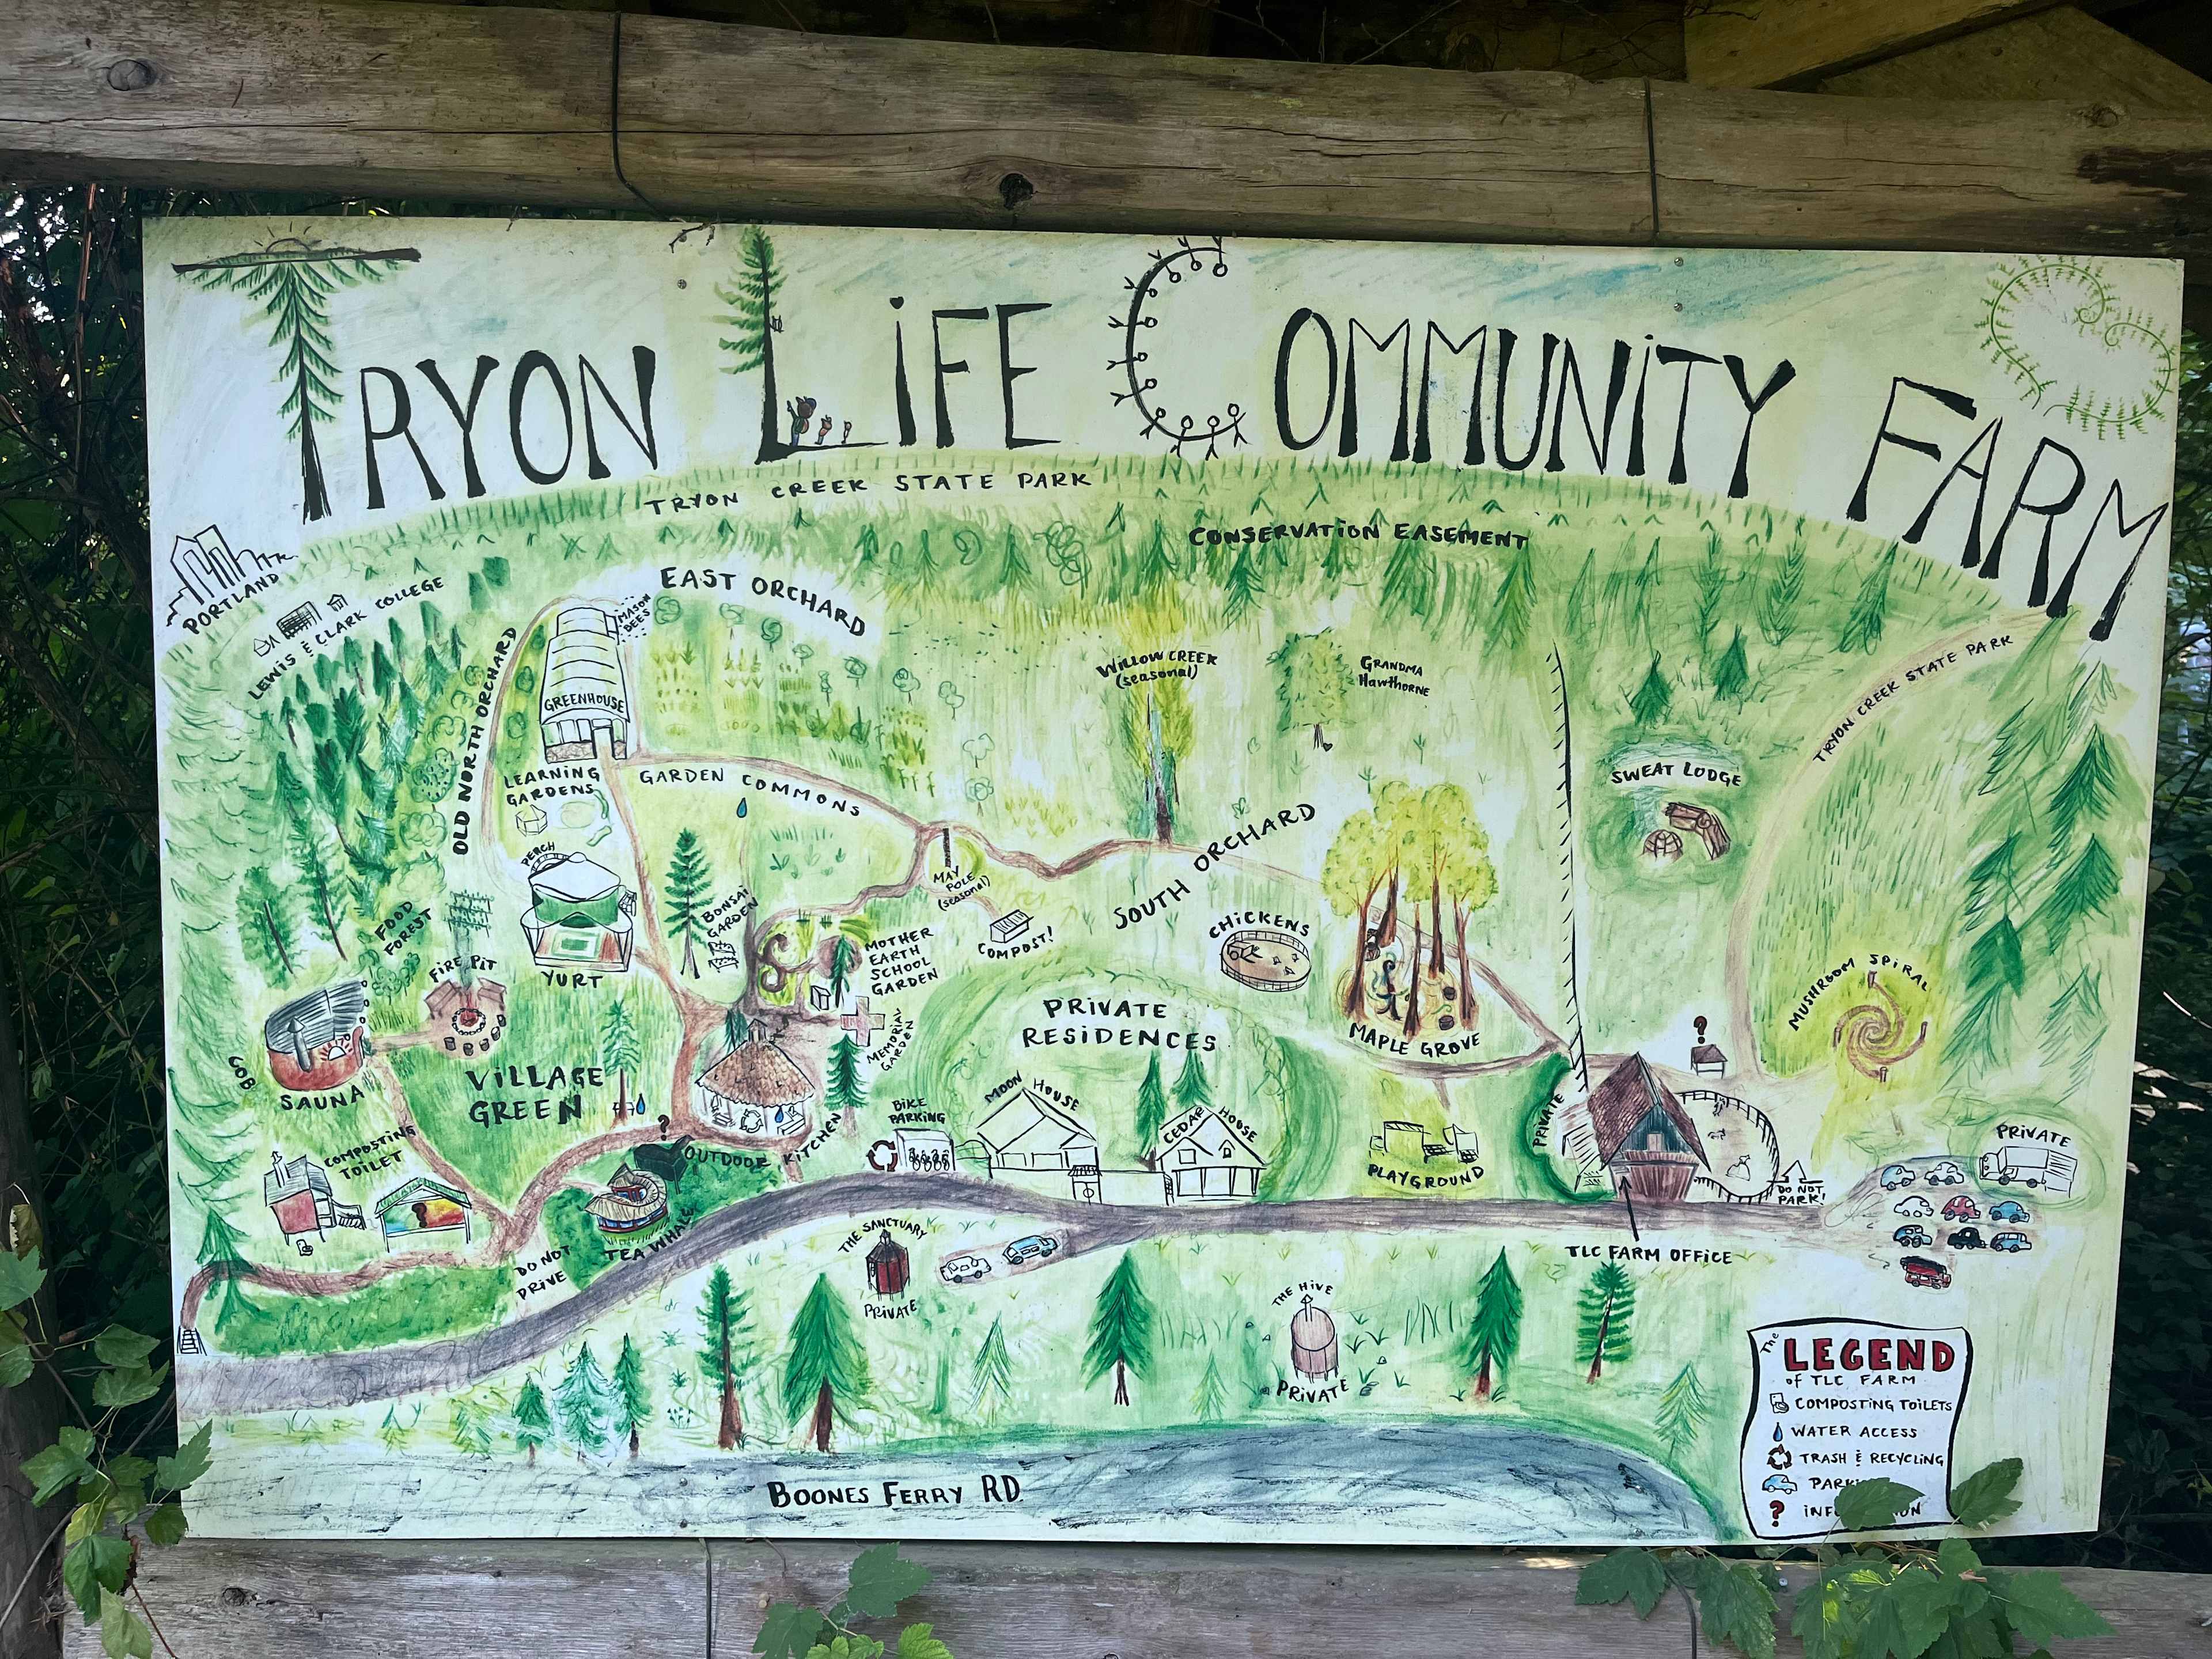 TRYON LiFE COMMUNiTY FARM
TRYON CREEK STATE PARK
CONSERVATION EASEMENT
PORTLAND
LEWIS & CLARK COLLEGE
EAST ORCHARD
MASON
BEES
OLD NORTH ORCHARD
GREENHOUSE
WILLOW CREEK
(seasonal)
GRANDMA
HAWTHORNE
TRYON CREEK STATE PARK
LEARNING
GARDENS
GARDEN COMMONS
SWEAT LODGE
SOUTH ORCHARD
PERCH
YURT
FOOD
FOREST
FIRE PIT
BONSAI
GARDEN
MAY
POLE
(seasonal)
COMPOST!
MOTHER
EARTH
SCHOOL
GARDEN
MEMORIAL
GARDEN
CHiCKENS
MAPLE GROVE
MUSHROOM SPIRAL
PRiVATE
RESIDENCES
COB
SAUNA
ViLLAGE
GREEN
?
COMPOSTING
TOILET
?
OUTDOOR KITCHEN
BIKE
PARKING
MOON HOUSE
CEDAR HOUSE
PLAYGROUND
PRIVATE
?
DO NOT
PARK!
PRiVATE
TEA WHALE
DO NOT
DRIVE
THE SANCTUARY
PRIVATE
TLC FARM OFFICE
THE HIVE
PRiVATE
BOONES FERRY RD
The LEGEND
of TLC FARM
COMPOSTING TOILETS
WATER ACCESS
TRASH & RECYCLING
?